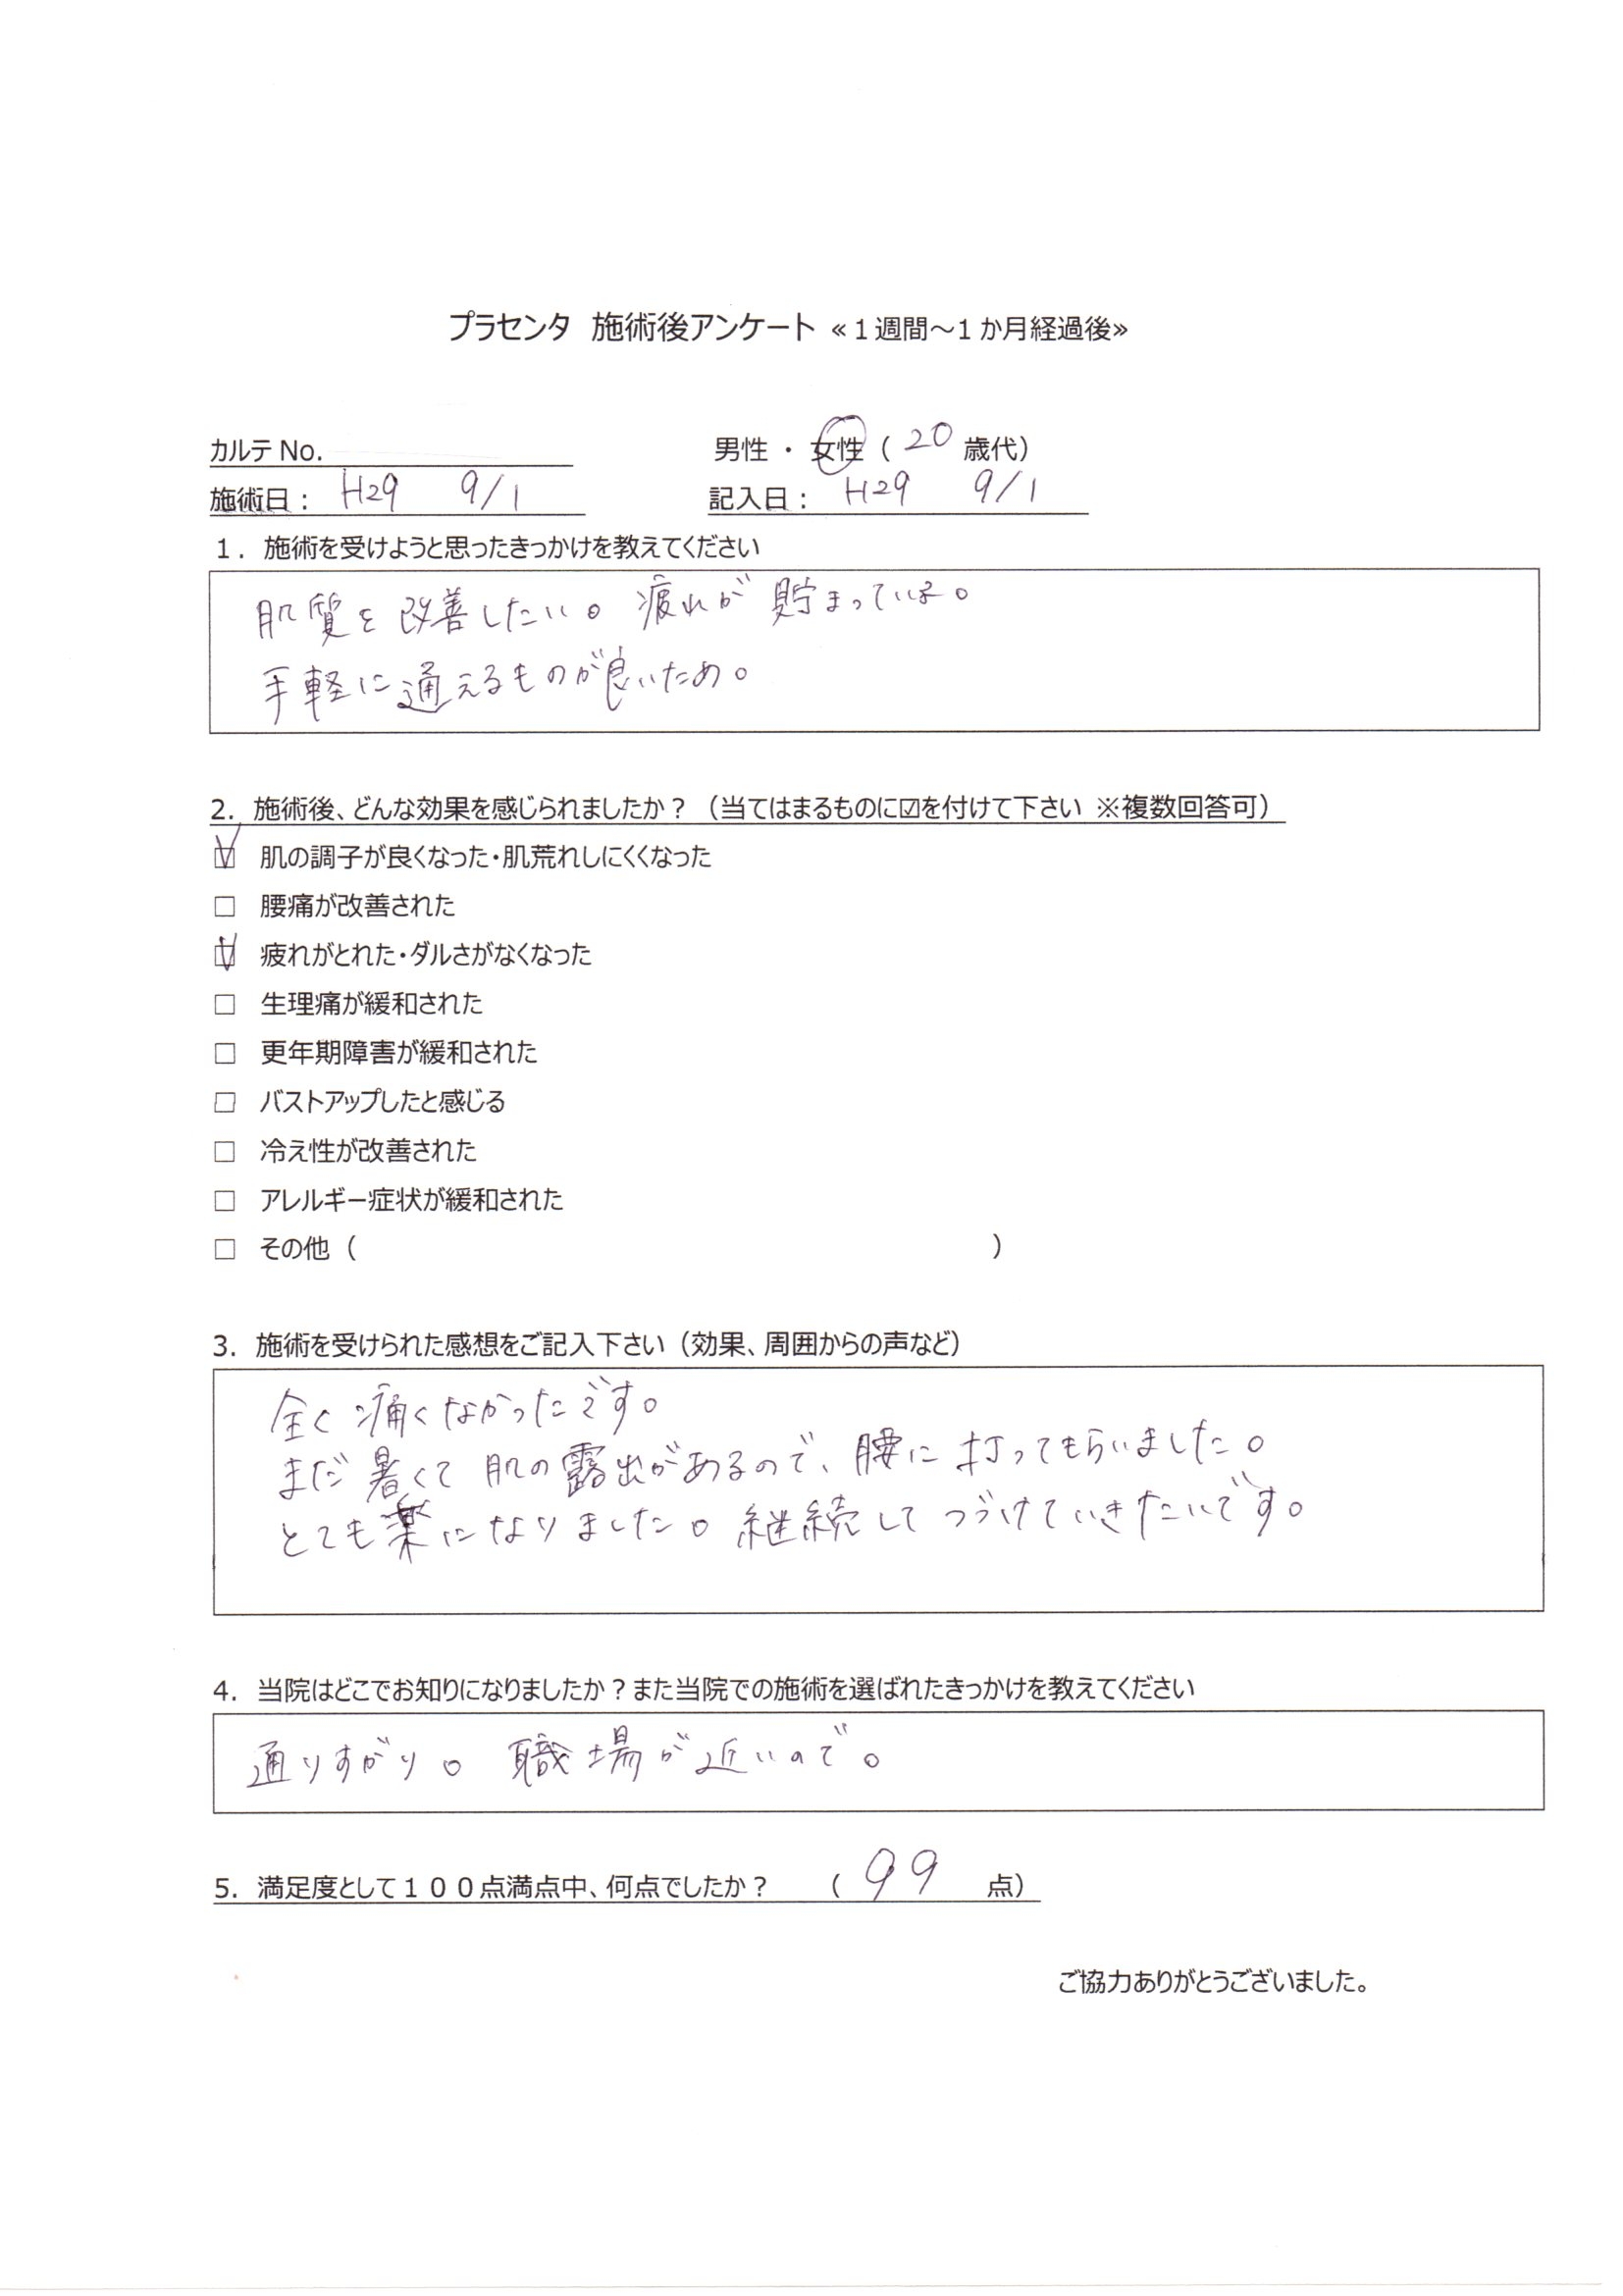 プラセンタ 施術後アンケート ≪１週間～１か月経過後≫
カルテ No. 男性 ・ 女性 ( 20 歳代)
施術日： H29 9/1 記入日： H29 9/1
1. 施術を受けようと思ったきっかけを教えてください
肌質を改善したい。疲れが貯まっている。
手軽に通えるものが良いため。
2. 施術後、どんな効果を感じられましたか？（当てはまるものに☑を付けて下さい ※複数回答可）
☑ 肌の調子が良くなった・肌荒れしにくくなった
□ 腰痛が改善された
☑ 疲れがとれた・ダルさがなくなった
□ 生理痛が緩和された
□ 更年期障害が緩和された
□ バストアップしたと感じる
□ 冷え性が改善された
□ アレルギー症状が緩和された
□ その他（ ）
3. 施術を受けられた感想をご記入下さい（効果、周囲からの声など）
全く痛くなかったです。
まだ暑くて肌の露出があるので、腰に打ってもらいました。
とても楽になりました。継続してつづけていきたいです。
4. 当院はどこでお知りになりましたか？また当院での施術を選ばれたきっかけを教えてください
通りすがり。職場が近いので。
5. 満足度として１００点満点中、何点でしたか？ （ 99 点）
ご協力ありがとうございました。